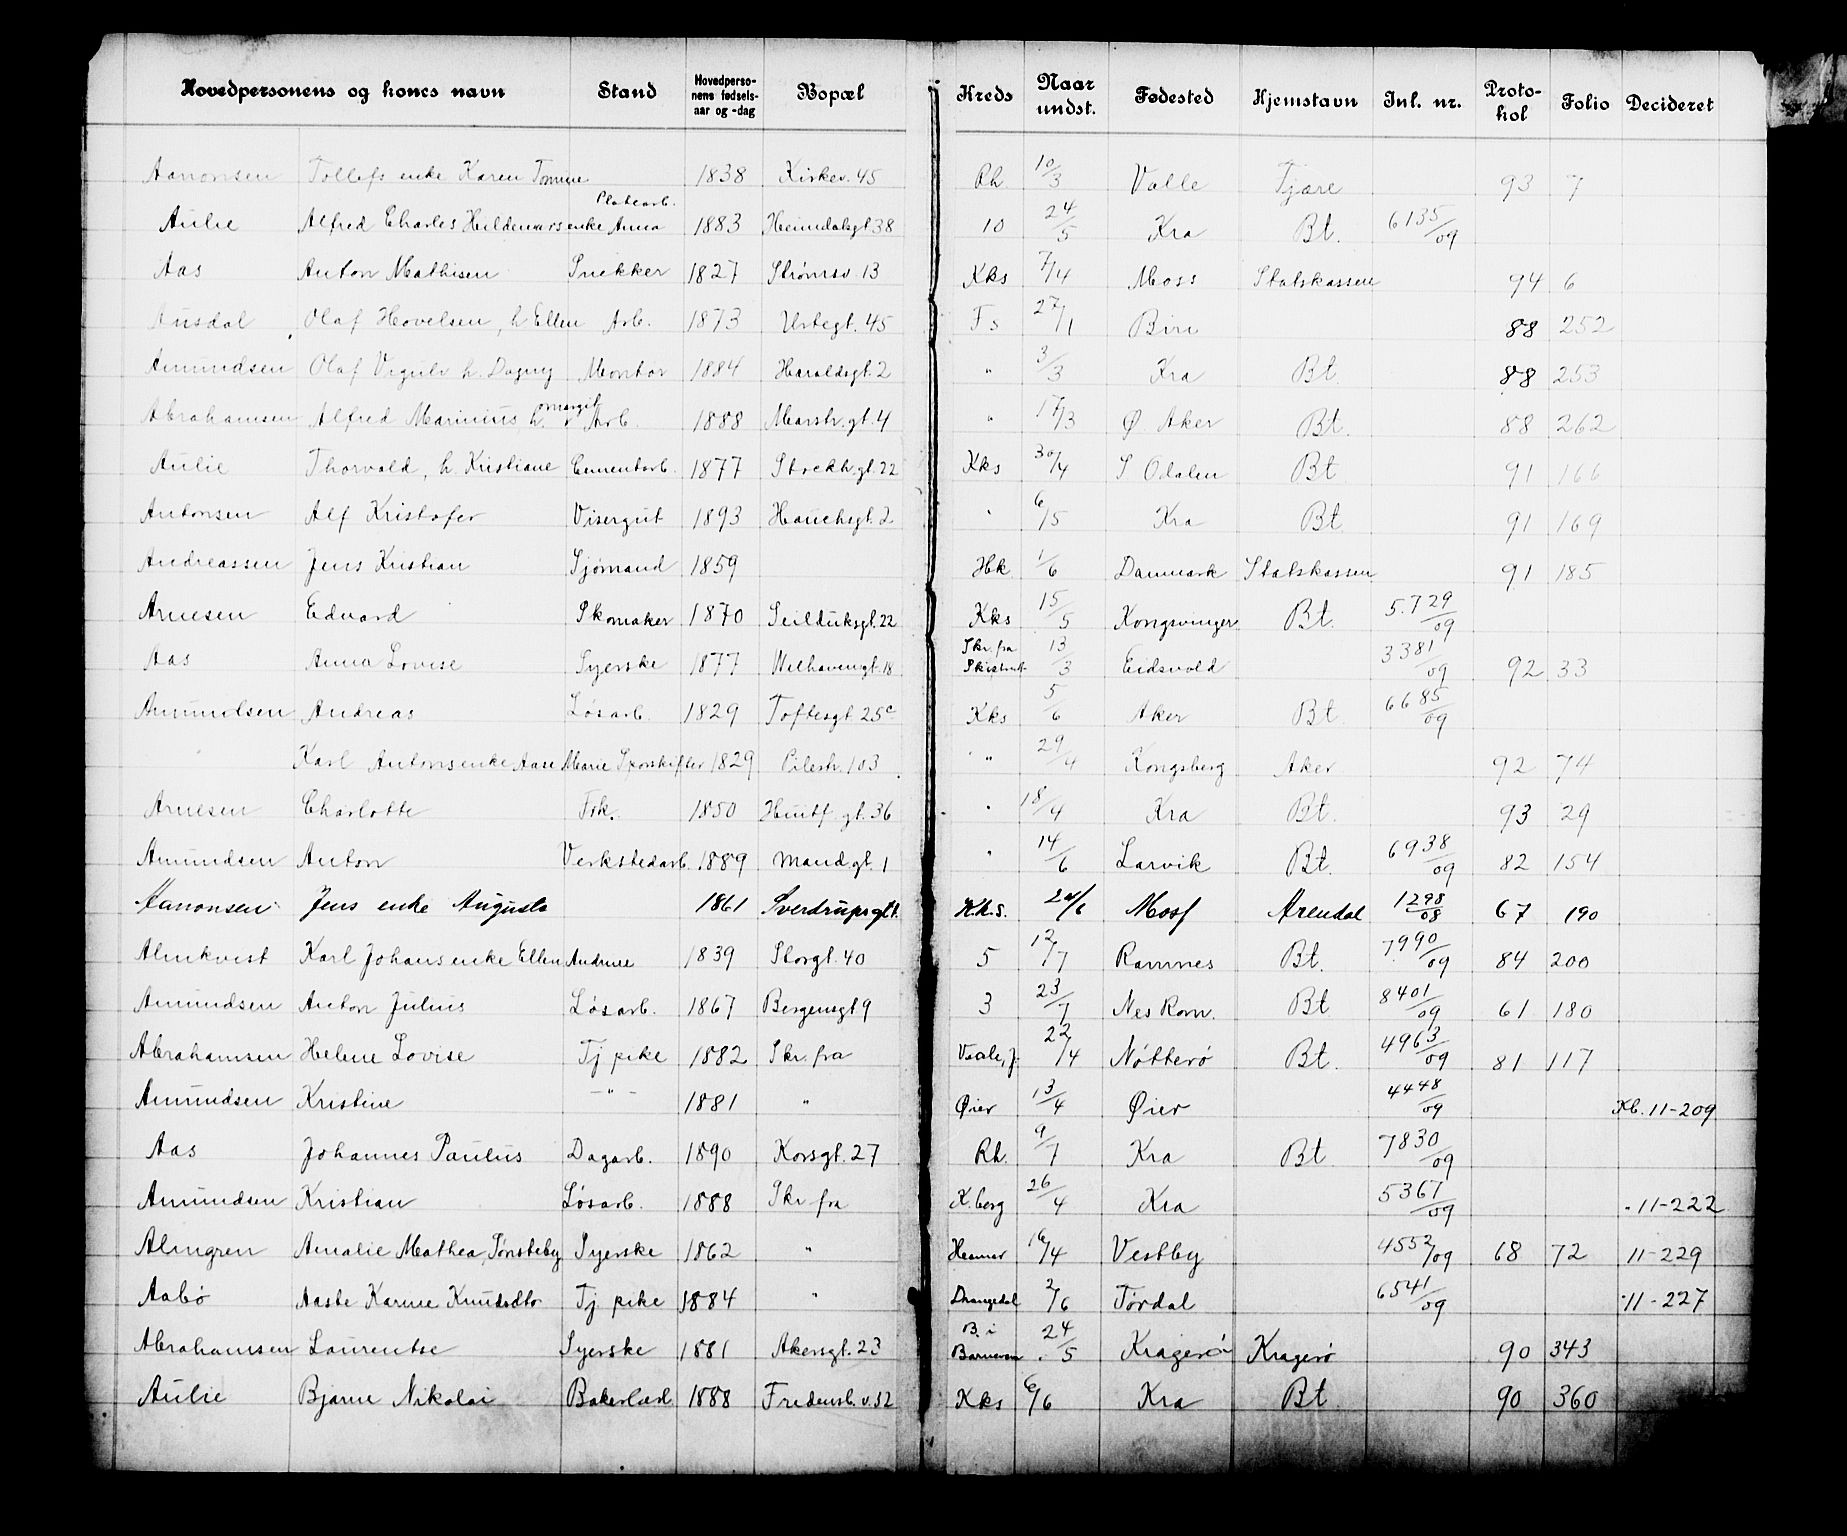 Hovedpersonens og hones navn Stand Hovedpersonens fødselsaar og -dag Bopæl Kreds Naar undst. Fødested Hjemstavn Inl. nr. Protokol Folio Decideret
Aanonsen Tollefs enke Karen Tomine 1838 Kirkev. 45 Rh. 10/3 Valle Tjøre 93 7
Aulie Alfred Charles Hildemars enke Anna Platearb. 1883 Heimdalsgt 38 10 24/5 Kra Bt. 6135/09
Aas Anton Mathisen Snekker 1827 Strømsv. 13 Kks 7/4 Moss Statskassen 94 6
Ausdal Olaf Hovelsen, h Ellen Arb. 1873 Urtegt. 45 Fs 27/1 Biri 88 252
Amundsen Olaf Vigulv h. Dagny Montør 1884 Haraldsgt. 2 " 3/3 Kra Bt 88 253
Abrahamsen Alfred Marinius, h. Margit Arb. 1888 Marstr. gt. 4 " 17/3 Ø Aker Bt. 88 262
Aulie Thorvald, h. Kristiane Cementarb. 1877 Stockh. gt. 22 Kks 30/4 S Odalen Bt 91 166
Antonsen Alf Kristofer Visergut 1893 Hauchsgt. 2 " 6/5 Kra Bt 91 169
Andreassen Jens Kristian Sjømand 1859 Hk. 1/6 Danmark Statskassen 91 185
Arnesen Edvard Skomaker 1870 Seilduksgt. 22 Kks 15/5 Kongsvinger Bt. 5729/09
Aas Anna Lovise Syerske 1877 Welhavensgt. 18 Skr. fra 13/3 Eidsvold 3381/09 92 33
Amundsen Andreas Løsarb. 1829 Toftesgt. 25c Kks 5/6 Aker Bt. 6685/09
" Karl Antons enke Aase Marie 1829 Pilestr. 103 " 29/4 Kongsberg Aker 92 74
Arnesen Charlotte Frk. 1850 Huitf. gt. 36 " 18/4 Kra Bt. 93 29
Amundsen Anton Verkstedarb. 1889 Maudgt. 1 " 14/6 Larvik Bt. 6938/09 82 154
Aanonsen Jens enke Augusta 1861 Sverdrupsgt 1. Kk.s. 24/6 Moss Arendal 1298/08 67 190
Almkvist Karl Johans enke Ellen Andrine 1839 Storgt. 40 5 12/7 Ramnes Bt. 7990/09 84 200
Amundsen Anton Julius Løsarb. 1867 Bergensgt 9 3 23/7 Nes Rom. Bt 8401/09 61 180
Abrahamsen Helene Lovise Tj pike 1882 Skr. fra Vaale, J. 22/4 Nøtterø Bt. 4963/09 81 117
Amundsen Kristine — " — 1881 " Øier 13/4 Øier 4448/09 Kb. 11-209
Aas Johannes Paulus Dagarb. 1890 Korsgt. 27 Rh. 9/7 Kra Bt. 7830/09
Amundsen Kristian Løsarb. 1888 Skr. fra K.berg 26/4 Kra 5367/09 " 11-222
Almgren Amalie Mathea, Tønsteby Syerske 1862 " Hamar 16/4 Vestby 4552/09 68 72 11-229
Aabø Aaste Karine Knudsdtr Tj pike 1884 " Drangedal 2/6 Tørdal 6541/09 " 11-227
Abrahamsen Laurentse Syerske 1881 Akersgt. 23 B. i 24/5 Kragerø Kragerø 90 343
Aulie Bjarne Nikolai Bakerlærl 1888 Fredensb. v. 52 Kks 6/6 Kra Bt. 90 360